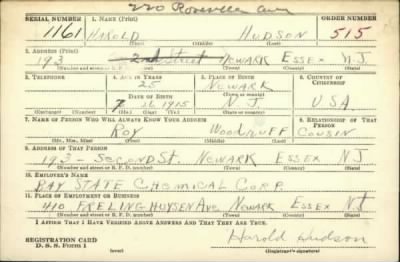 220 Roseville Ave
SERIAL NUMBER 1. NAME (Print) ORDER NUMBER
1161 HAROLD HUDSON 515
(First) (Middle) (Last)
2. ADDRESS (Print)
193 2nd Street NEWARK ESSEX N.J.
(Number and street or R. F. D. number) (Town) (County) (State)
3. TELEPHONE 4. AGE IN YEARS 5. PLACE OF BIRTH 6. COUNTRY OF CITIZENSHIP
25 NEWARK
(Town or county)
DATE OF BIRTH
7 26 1915 N.J. USA
(Exchange) (Number) (Mo.) (Day) (Yr.) (State or country)
7. NAME OF PERSON WHO WILL ALWAYS KNOW YOUR ADDRESS 8. RELATIONSHIP OF THAT PERSON
ROY WOODRUFF COUSIN
(Mr., Mrs., Miss) (First) (Middle) (Last)
9. ADDRESS OF THAT PERSON
193 - SECOND ST. NEWARK ESSEX NJ
(Number and street or R. F. D. number) (Town) (County) (State)
10. EMPLOYER'S NAME
BAY STATE CHEMICAL CORP.
11. PLACE OF EMPLOYMENT OR BUSINESS
410 FRELINGHUYSEN AVE NEWARK ESSEX NJ
(Number and street or R. F. D. number) (Town) (County) (State)
I AFFIRM THAT I HAVE VERIFIED ABOVE ANSWERS AND THAT THEY ARE TRUE.
REGISTRATION CARD
D. S. S. Form 1 (over) Harold Hudson
(Registrant's signature)